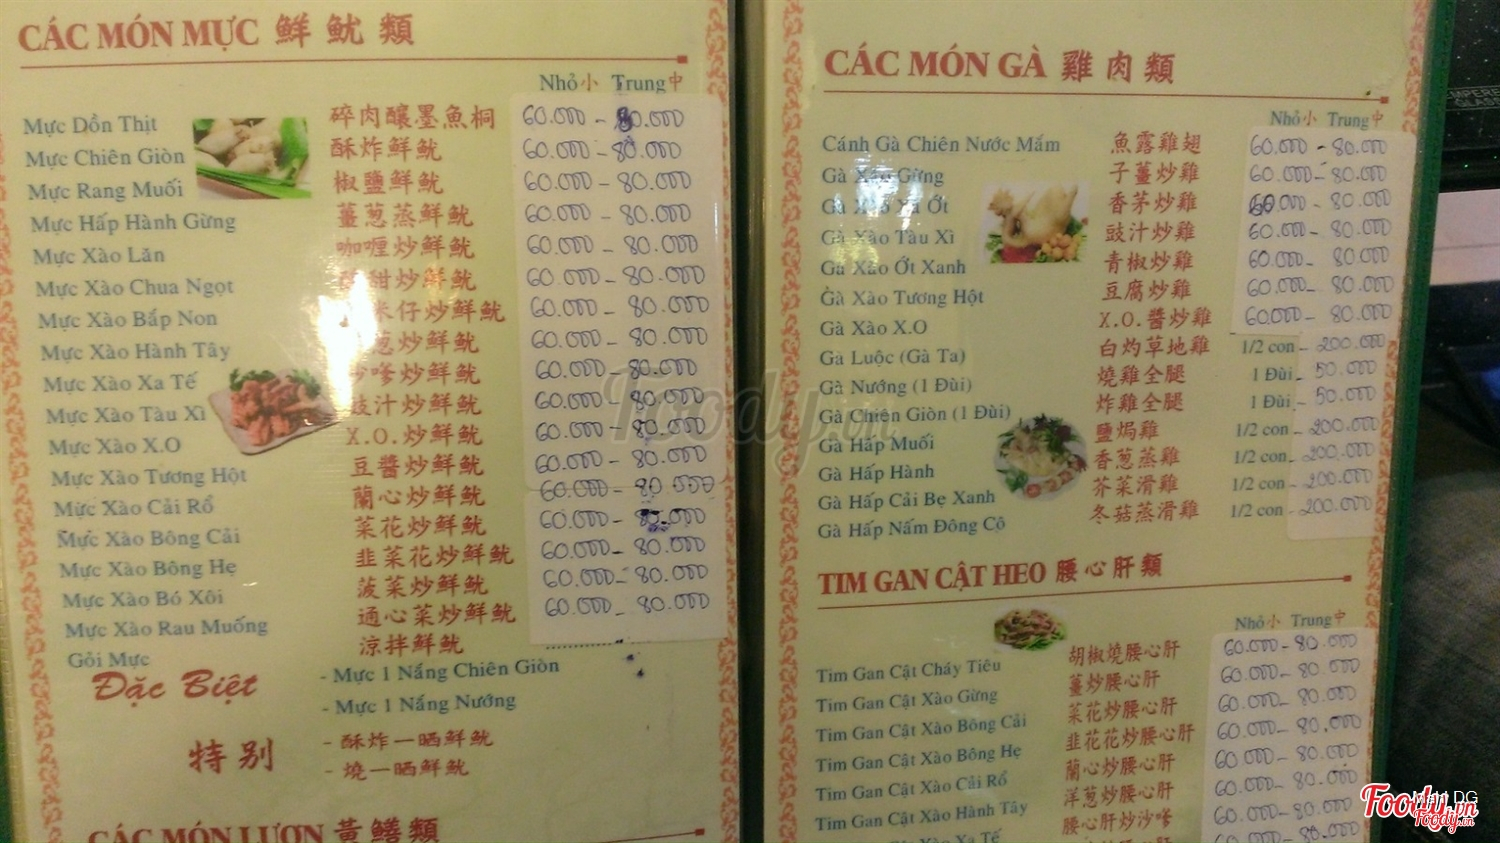 CÁC MÓN MỰC 鮮魷類
Nhỏ小 Trung中
Mực Dồn Thịt 碎肉釀墨魚桐 60.000 - 80.000
Mực Chiên Giòn 酥炸鮮魷 60.000 - 80.000
Mực Rang Muối 椒鹽鮮魷 60.000 - 80.000
Mực Hấp Hành Gừng 薑葱蒸鮮魷 60.000 - 80.000
Mực Xào Lăn 咖喱炒鮮魷 60.000 - 80.000
Mực Xào Chua Ngọt 甜炒鮮魷 60.000 - 80.000
Mực Xào Bắp Non 米仔炒鮮魷 60.000 - 80.000
Mực Xào Hành Tây 葱炒鮮魷 60.000 - 80.000
Mực Xào Xa Tế 嗲炒鮮魷 60.000 - 80.000
Mực Xào Tàu Xì 豉汁炒鮮魷 60.000 - 80.000
Mực Xào X.O X.O.炒鮮魷 60.000 - 80.000
Mực Xào Tương Hột 豆醬炒鮮魷 60.000 - 80.000
Mực Xào Cải Rổ 蘭心炒鮮魷 60.000 - 80.000
Mực Xào Bông Cải 菜花炒鮮魷 60.000 - 80.000
Mực Xào Bông Hẹ 韭菜花炒鮮魷 60.000 - 80.000
Mực Xào Bó Xôi 菠菜炒鮮魷 60.000 - 80.000
Mực Xào Rau Muống 通心菜炒鮮魷 60.000 - 80.000
Gỏi Mực 涼拌鮮魷
Đặc Biệt
- Mực 1 Nắng Chiên Giòn
- Mực 1 Nắng Nướng
特别
- 酥炸一晒鮮魷
- 燒一晒鮮魷
CÁC MÓN LƯƠN 黃鱔類
CÁC MÓN GÀ 雞肉類
Nhỏ小 Trung中
Cánh Gà Chiên Nước Mắm 魚露雞翅 60.000 - 80.000
Gà Xào Gừng 子薑炒雞 60.000 - 80.000
Gà Xào Xả Ớt 香茅炒雞 60.000 - 80.000
Gà Xào Tàu Xì 豉汁炒雞 60.000 - 80.000
Gà Xào Ớt Xanh 青椒炒雞 60.000 - 80.000
Gà Xào Tương Hột 豆腐炒雞 60.000 - 80.000
Gà Xào X.O X.O.醬炒雞 60.000 - 80.000
Gà Luộc (Gà Ta) 白灼草地雞 1/2 con - 200.000
Gà Nướng (1 Đùi) 燒雞全腿 1 Đùi - 50.000
Gà Chiên Giòn (1 Đùi) 炸雞全腿 1 Đùi - 50.000
Gà Hấp Muối 鹽焗雞 1/2 con - 200.000
Gà Hấp Hành 香葱蒸雞 1/2 con - 200.000
Gà Hấp Cải Bẹ Xanh 芥菜滑雞 1/2 con - 200.000
Gà Hấp Nấm Đông Cô 冬菇蒸滑雞 1/2 con - 200.000
TIM GAN CẬT HEO 腰心肝類
Nhỏ小 Trung中
Tim Gan Cật Cháy Tiêu 胡椒燒腰心肝 60.000 - 80.000
Tim Gan Cật Xào Gừng 薑炒腰心肝 60.000 - 80.000
Tim Gan Cật Xào Bông Cải 菜花炒腰心肝 60.000 - 80.000
Tim Gan Cật Xào Bông Hẹ 韭花花炒腰心肝 60.000 - 80.000
Tim Gan Cật Xào Cải Rổ 蘭心炒腰心肝 60.000 - 80.000
Tim Gan Cật Xào Hành Tây 洋葱炒腰心肝 60.000 - 80.000
Xa Tế 腰心肝炒沙嗲 60.000 - 80.000
Foody.vn
EMPERE
GLASS
Mart DG
Foody.vn
Foody.vn